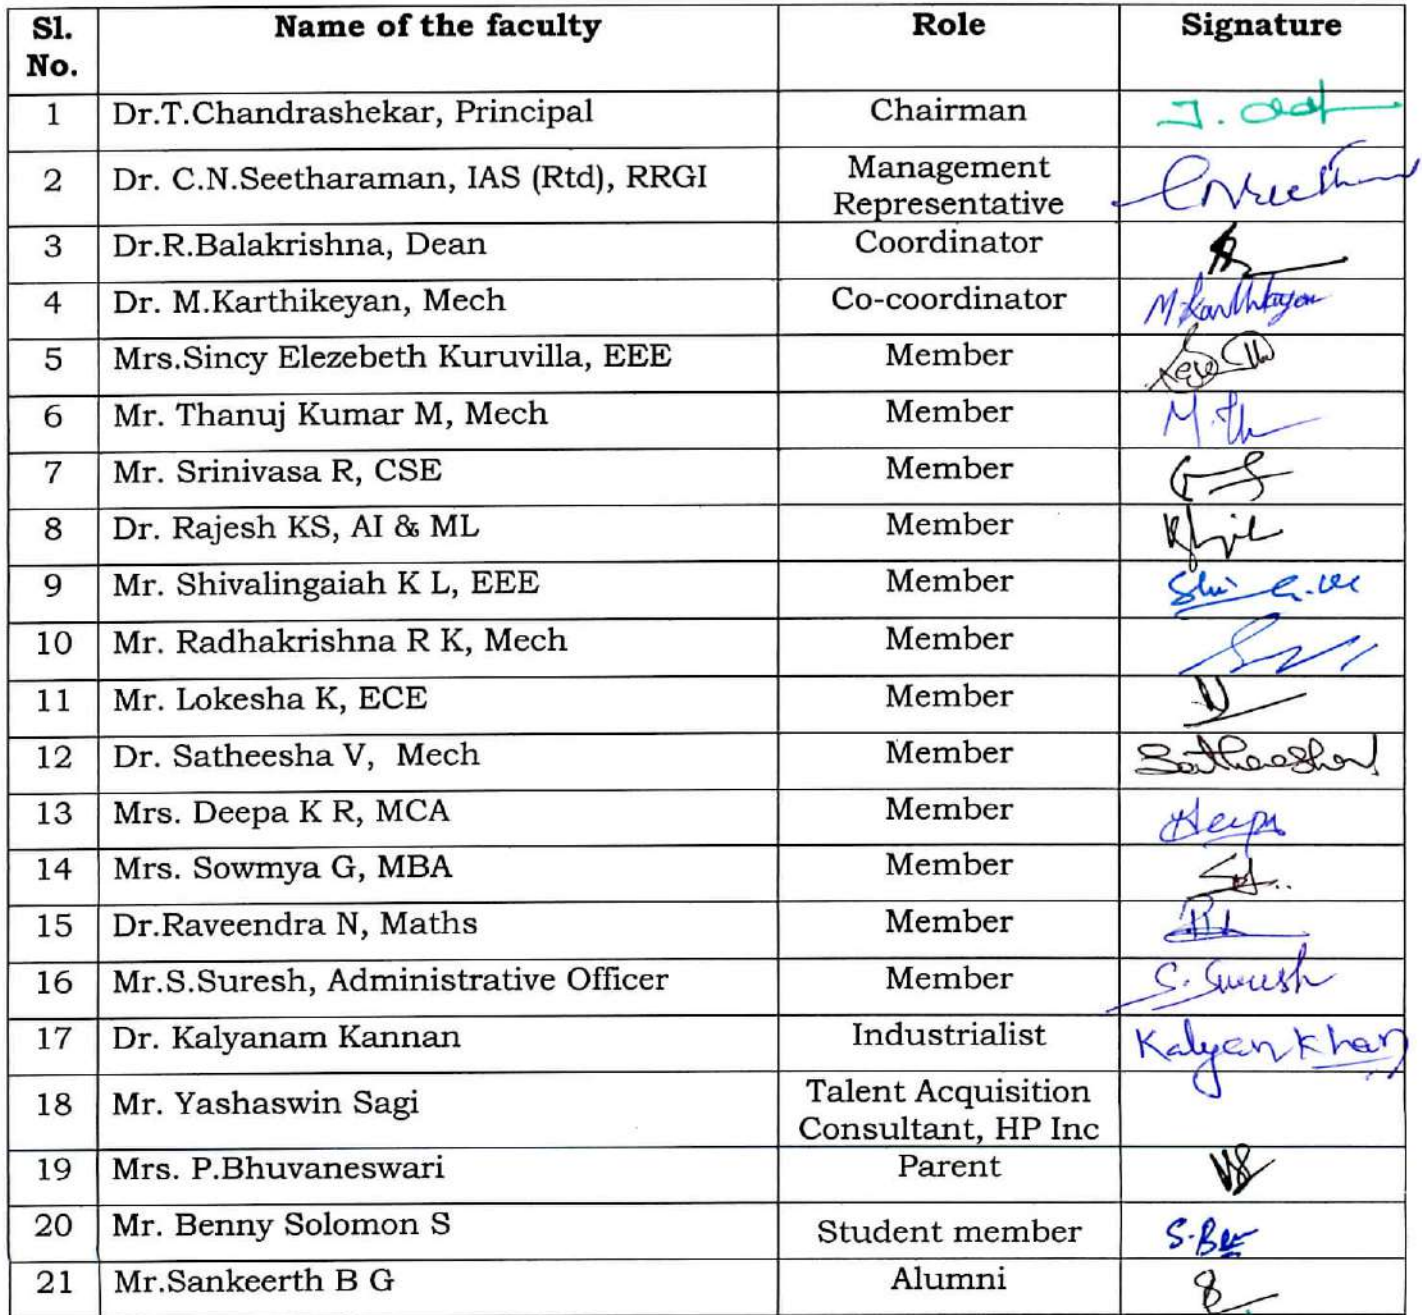 Sl. No. Name of the faculty Role Signature
1 Dr.T.Chandrashekar, Principal Chairman
2 Dr. C.N.Seetharaman, IAS (Rtd), RRGI Management Representative
3 Dr.R.Balakrishna, Dean Coordinator
4 Dr. M.Karthikeyan, Mech Co-coordinator M Karthikeyan
5 Mrs.Sincy Elezebeth Kuruvilla, EEE Member
6 Mr. Thanuj Kumar M, Mech Member
7 Mr. Srinivasa R, CSE Member
8 Dr. Rajesh KS, AI & ML Member
9 Mr. Shivalingaiah K L, EEE Member
10 Mr. Radhakrishna R K, Mech Member
11 Mr. Lokesha K, ECE Member
12 Dr. Satheesha V, Mech Member
13 Mrs. Deepa K R, MCA Member Deepa
14 Mrs. Sowmya G, MBA Member
15 Dr.Raveendra N, Maths Member
16 Mr.S.Suresh, Administrative Officer Member S. Suresh
17 Dr. Kalyanam Kannan Industrialist
18 Mr. Yashaswin Sagi Talent Acquisition Consultant, HP Inc
19 Mrs. P.Bhuvaneswari Parent
20 Mr. Benny Solomon S Student member
21 Mr.Sankeerth B G Alumni